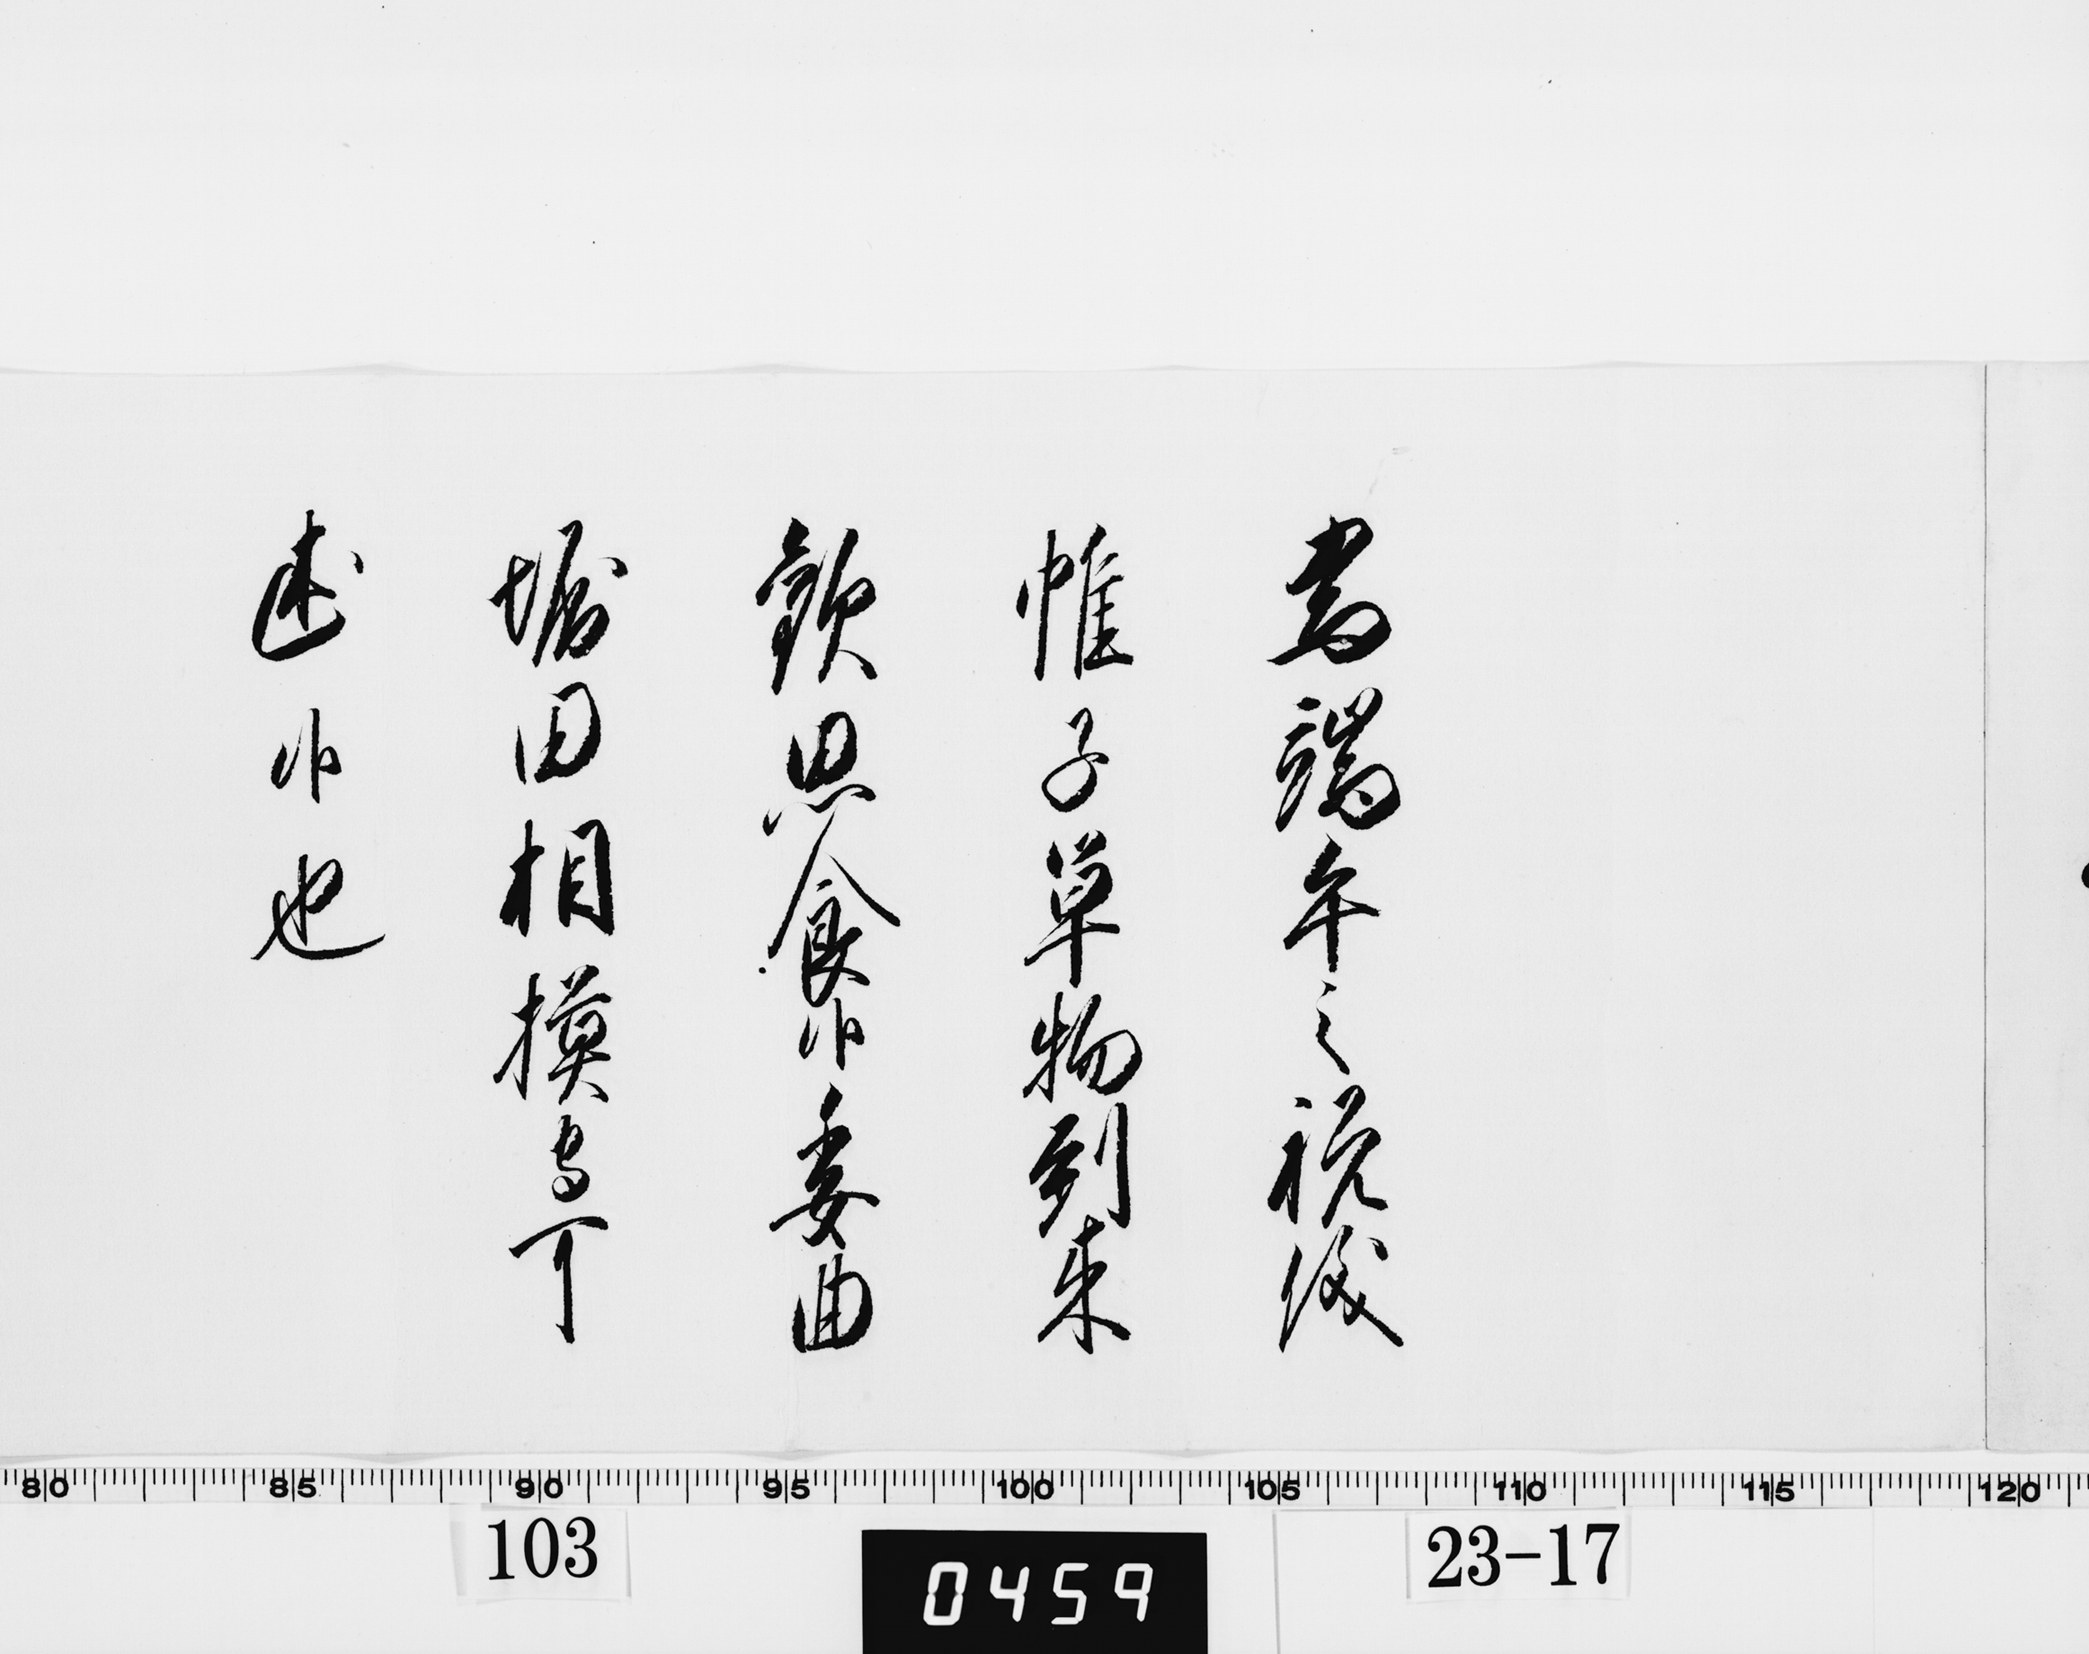 為端午之祝儀
帷子単物到来
歓思食候委曲
堀田相模守可
述候也
80 85 90 95 100 105 110 115 120
103
0459
23-17